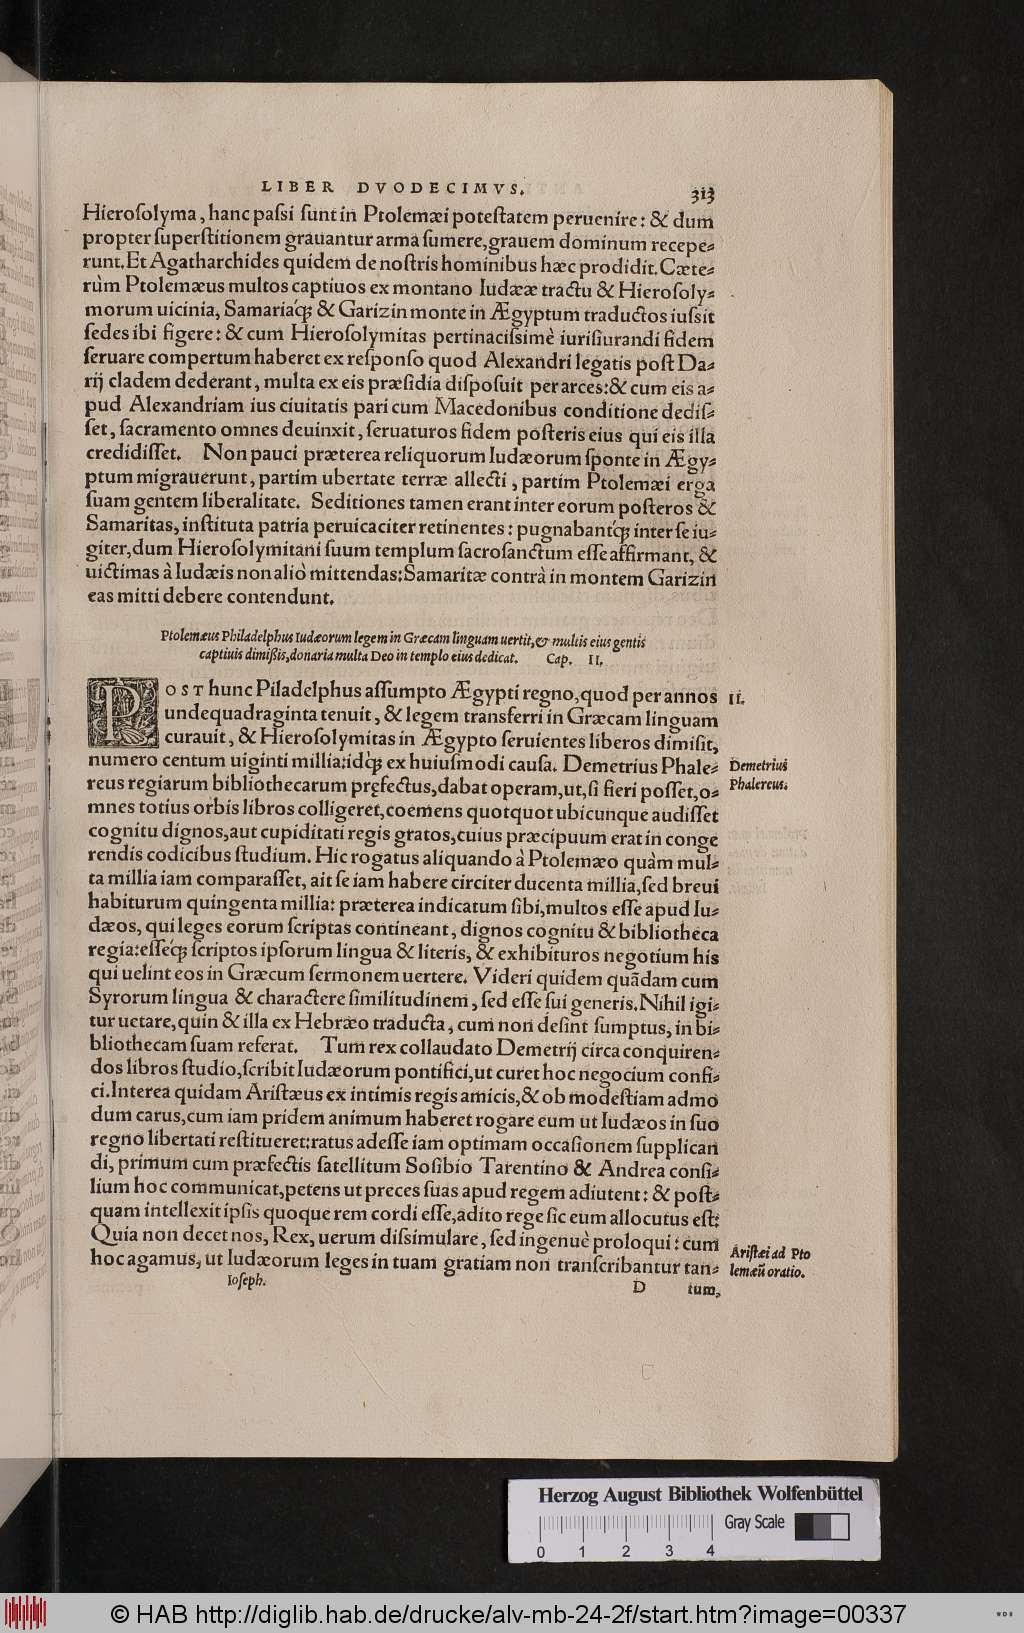 LIBER DVODECIMVS. 313
Hierosolyma, hanc passi sunt in Ptolemæi potestatem peruenire: & dum
propter superstitionem grauantur arma sumere, grauem dominum recepe-
runt. Et Agatharchides quidem de nostris hominibus hæc prodidit. Cæte-
rùm Ptolemæus multos captiuos ex montano Iudææ tractu & Hierosoly-
morum uicinia, Samariaq́; & Garizin monte in Ægyptum traductos iussit
sedes ibi figere: & cum Hierosolymitas pertinacissimè iurisiurandi fidem
seruare compertum haberet ex responso quod Alexandri legatis post Da-
rij cladem dederant, multa ex eis præsidia disposuit per arces: & cum eis a-
pud Alexandriam ius ciuitatis pari cum Macedonibus conditione dedis-
set, sacramento omnes deuinxit, seruaturos fidem posteris eius qui eis illa
credidisset. Non pauci præterea reliquorum Iudæorum sponte in Ægy-
ptum migrauerunt, partim ubertate terræ allecti, partim Ptolemæi erga
suam gentem liberalitate. Seditiones tamen erant inter eorum posteros &
Samaritas, instituta patria peruicaciter retinentes: pugnabantq́; inter se iu-
giter, dum Hierosolymitani suum templum sacrosanctum esse affirmant, &
uictimas à Iudæis non aliò mittendas: Samaritæ contrà in montem Garizin
eas mitti debere contendunt.
Ptolemæus Philadelphus Iudæorum legem in Græcam linguam uertit, & multis eius gentis
captiuis dimißis, donaria multa Deo in templo eius dedicat. Cap. II.
POST hunc Piladelphus assumpto Ægypti regno, quod per annos II.
undequadraginta tenuit, & legem transferri in Græcam linguam
curauit, & Hierosolymitas in Ægypto seruientes liberos dimisit,
numero centum uiginti millia: idq́; ex huiusmodi causa. Demetrius Phale-
Demetrius
reus regiarum bibliothecarum pręfectus, dabat operam, ut, si fieri posset, o-
Phalereus.
mnes totius orbis libros colligeret, coemens quotquot ubicunque audisset
cognitu dignos, aut cupiditati regis gratos, cuius præcipuum erat in conge
rendis codicibus studium. Hic rogatus aliquando à Ptolemæo quàm mul-
ta millia iam comparasset, ait se iam habere circiter ducenta millia, sed breui
habiturum quingenta millia: præterea indicatum sibi, multos esse apud Iu-
dæos, qui leges eorum scriptas contineant, dignos cognitu & bibliotheca
regia: esseq́; scriptos ipsorum lingua & literis, & exhibituros negotium his
qui uelint eos in Græcum sermonem uertere. Videri quidem quādam cum
Syrorum lingua & charactere similitudinem, sed esse sui generis. Nihil igi-
tur uetare, quin & illa ex Hebræo traducta, cum non desint sumptus, in bi-
bliothecam suam referat. Tum rex collaudato Demetrij circa conquiren-
dos libros studio, scribit Iudæorum pontifici, ut curet hoc negocium confi-
ci. Interea quidam Aristæus ex intimis regis amicis, & ob modestiam admo
dum carus, cum iam pridem animum haberet rogare eum ut Iudæos in suo
regno libertati restitueret: ratus adesse iam optimam occasionem supplican
di, primum cum præfectis satellitum Sosibio Tarentino & Andrea consi-
lium hoc communicat, petens ut preces suas apud regem adiutent: & post-
quam intellexit ipsis quoque rem cordi esse, adito rege sic eum allocutus est:
Quia non decet nos, Rex, uerum dissimulare, sed ingenuè proloqui: cum
Aristæi ad Pto
hoc agamus, ut Iudæorum leges in tuam gratiam non transcribantur tan-
lemæū oratio.
Ioseph. D tum,
Herzog August Bibliothek Wolfenbüttel
Gray Scale
0 1 2 3 4
© HAB http://diglib.hab.de/drucke/alv-mb-24-2f/start.htm?image=00337